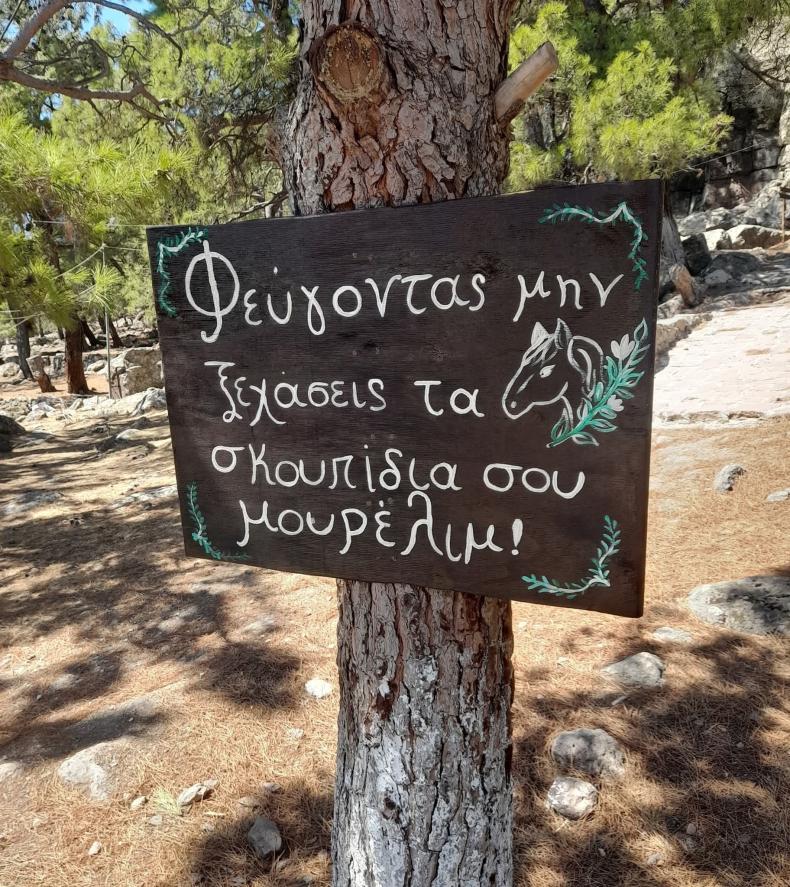 Φεύγοντας μην
ξεχάσεις τα
σκουπίδια σου
μουρέλιμ!